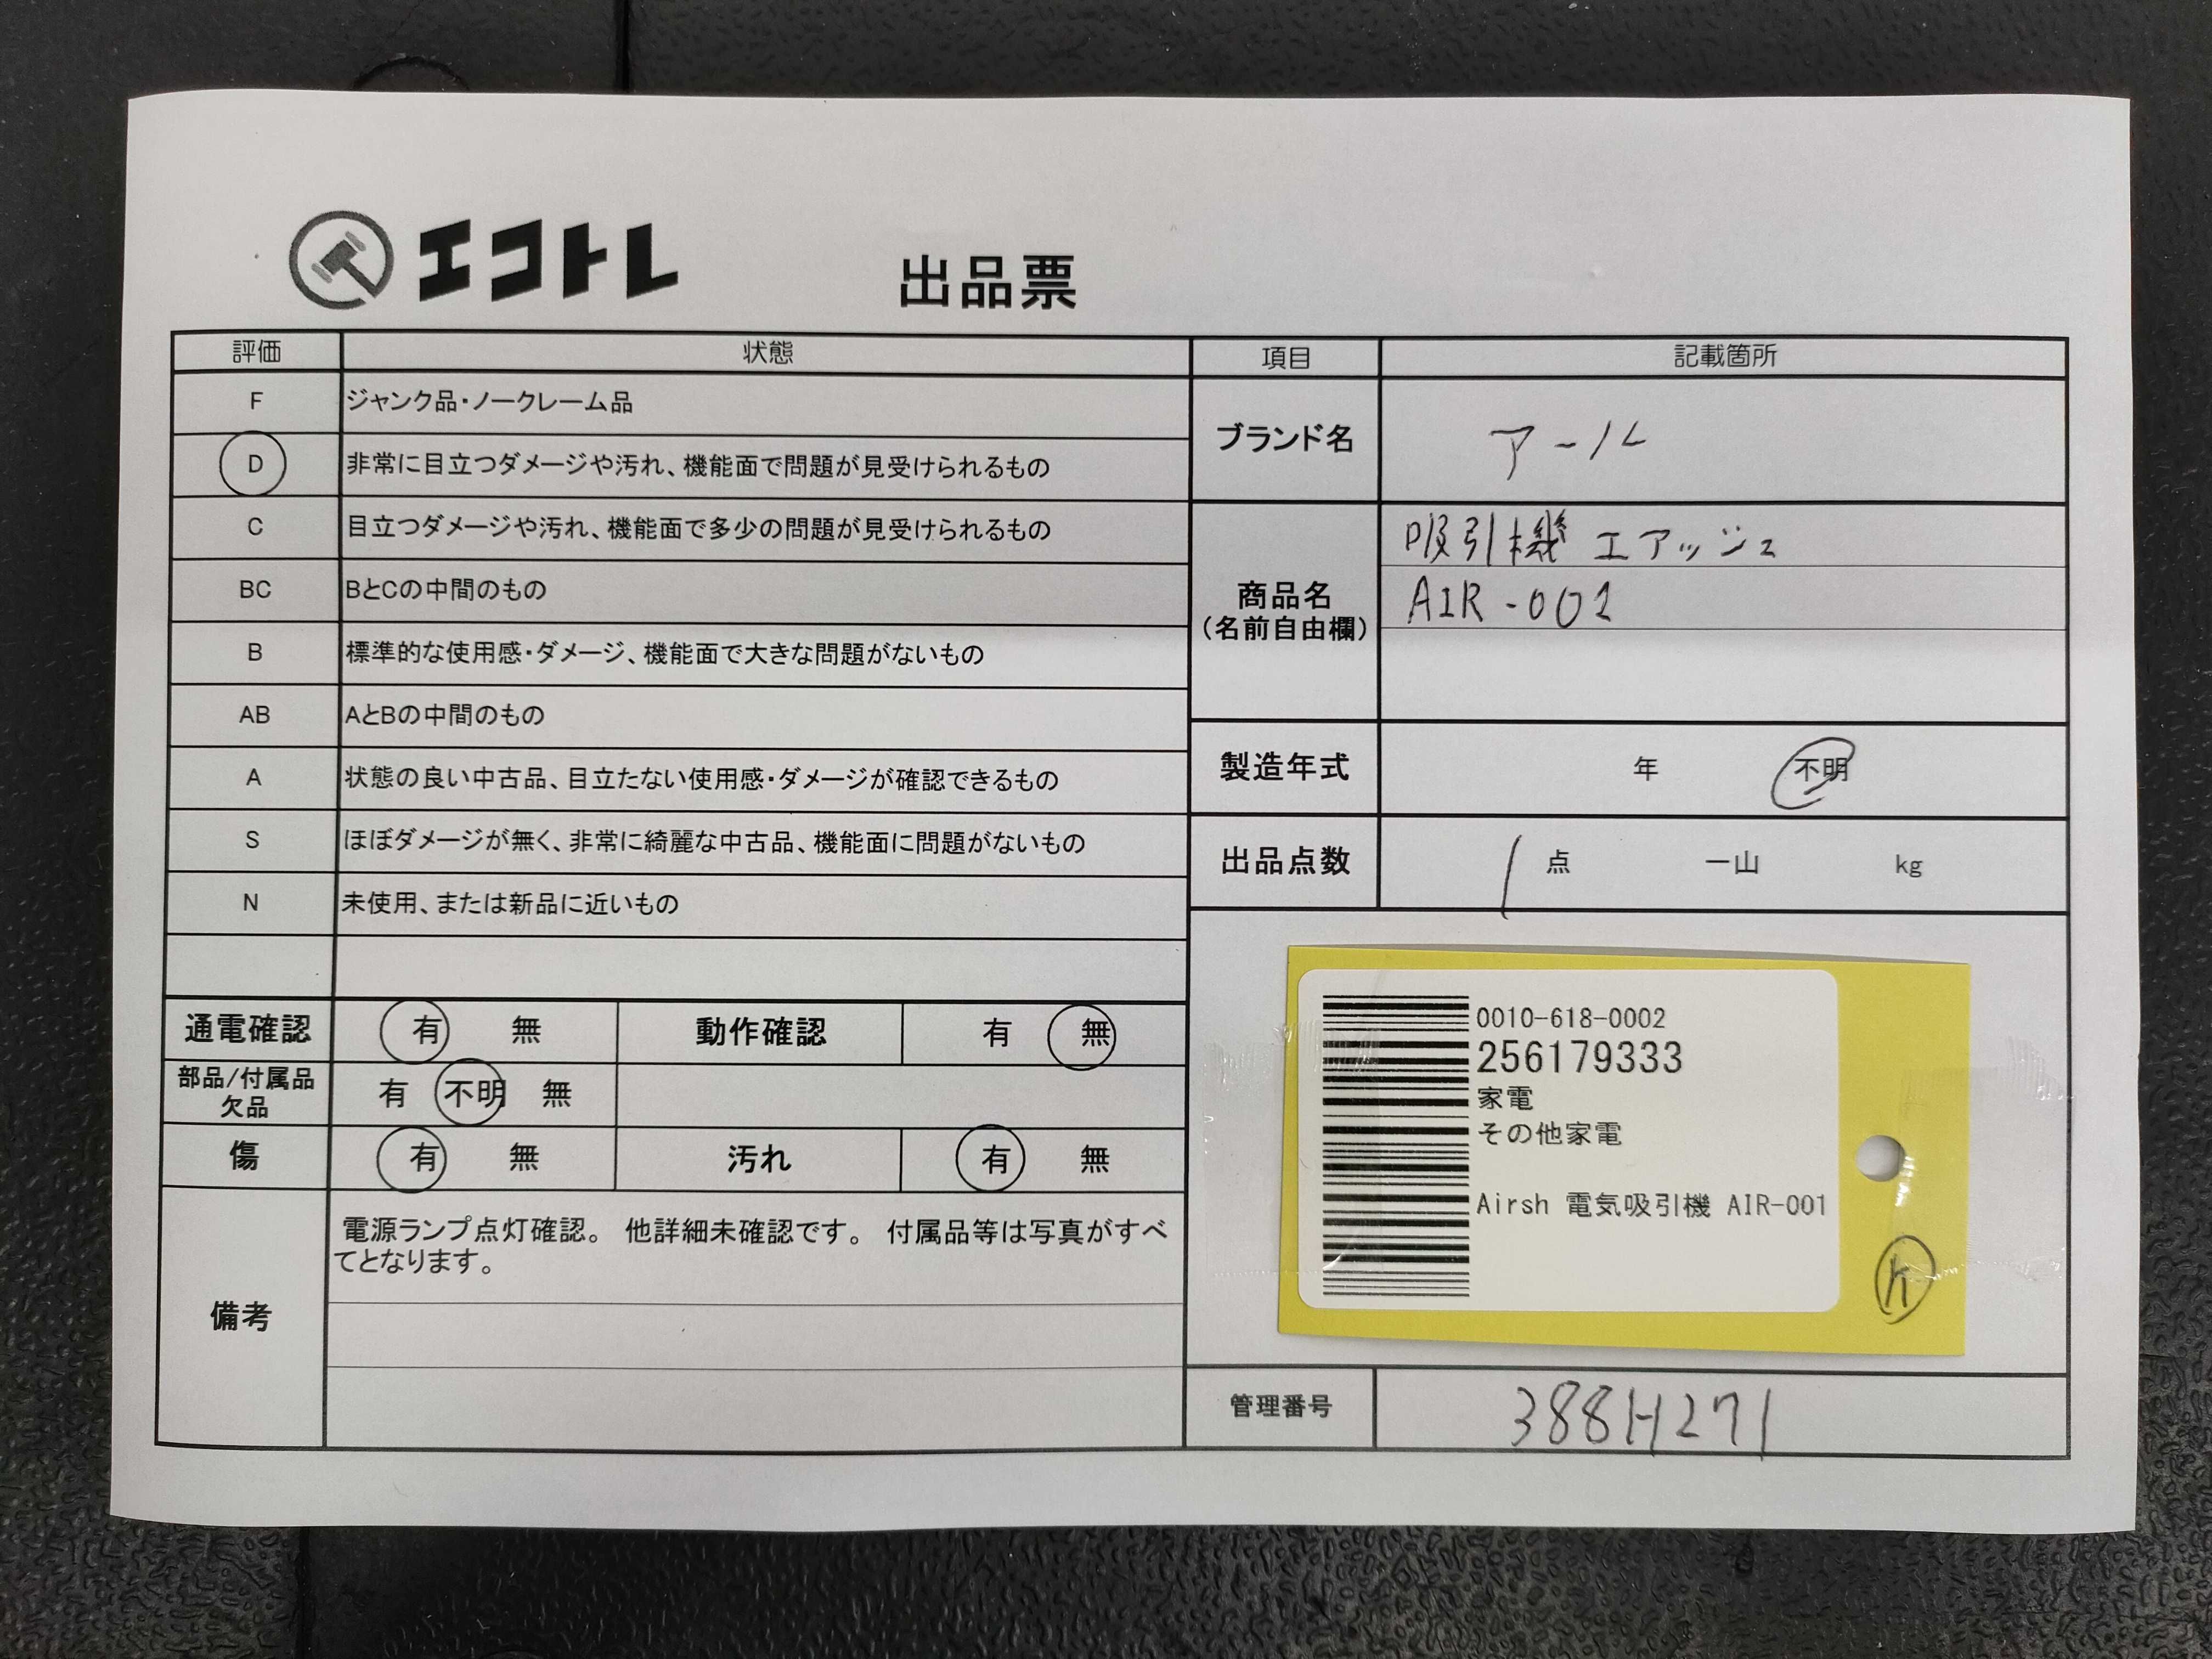 エコトレ
出品票
評価 状態
F ジャンク品・ノークレーム品
D 非常に目立つダメージや汚れ、機能面で問題が見受けられるもの
C 目立つダメージや汚れ、機能面で多少の問題が見受けられるもの
BC BとCの中間のもの
B 標準的な使用感・ダメージ、機能面で大きな問題がないもの
AB AとBの中間のもの
A 状態の良い中古品、目立たない使用感・ダメージが確認できるもの
S ほぼダメージが無く、非常に綺麗な中古品、機能面に問題がないもの
N 未使用、または新品に近いもの
通電確認 有 無 動作確認 有 無
部品/付属品
欠品
有 不明 無
傷 有 無 汚れ 有 無
備考
電源ランプ点灯確認。 他詳細未確認です。 付属品等は写真がすべ
てとなります。
項目 記載箇所
ブランド名 アール
商品名
(名前自由欄)
吸引機 エアッシュ
AIR-001
製造年式 年 不明
出品点数 1 点 一山 kg
0010-618-0002
256179333
家電
その他家電
Airsh 電気吸引機 AIR-001
管理番号 388H271